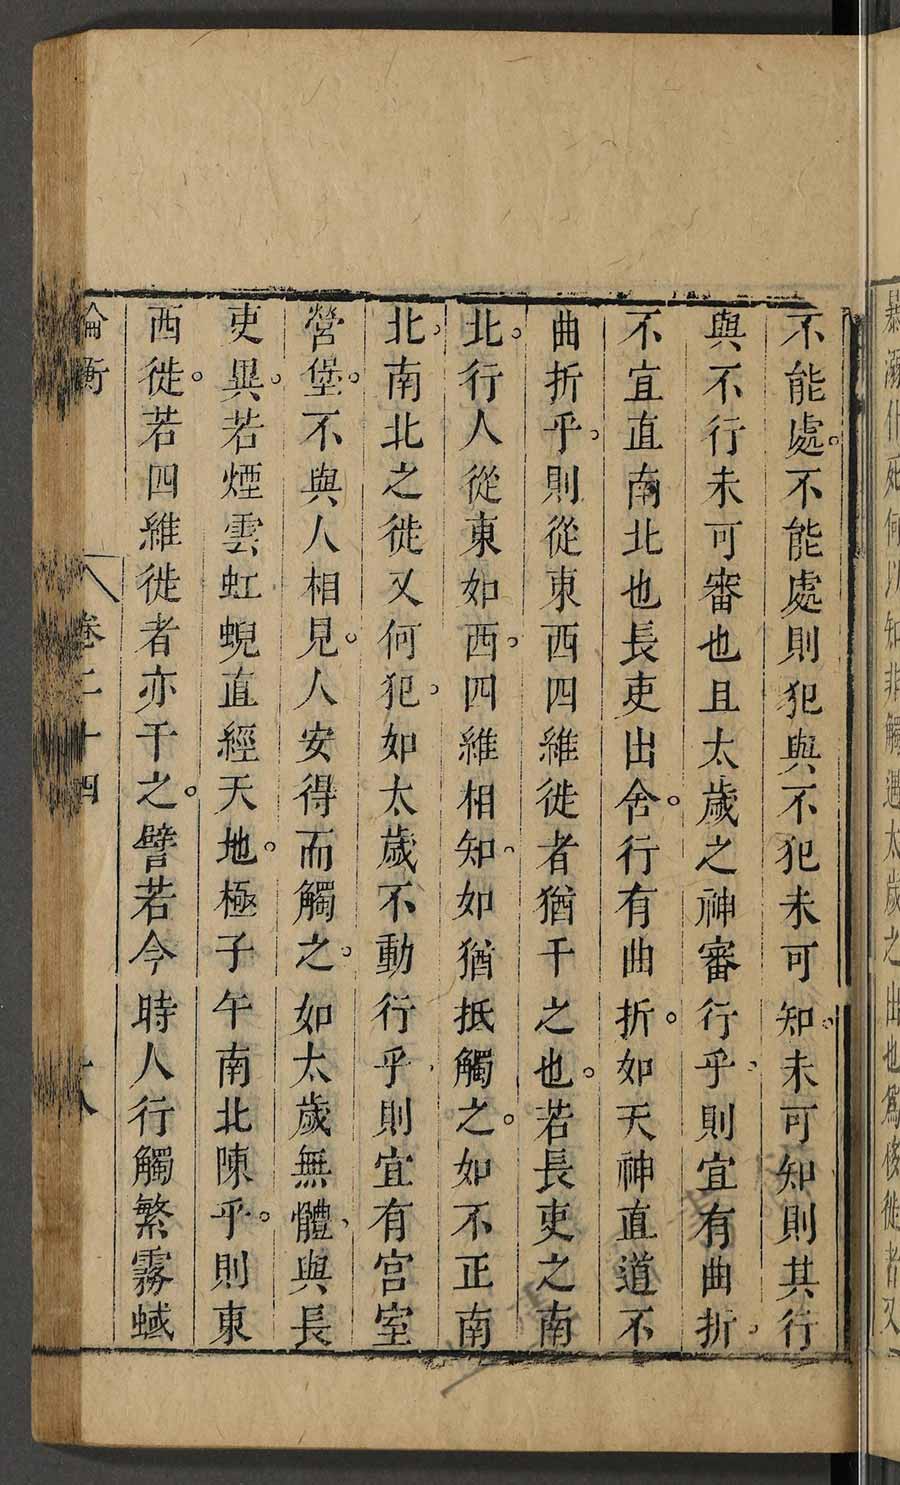 恭溺仆死何以知非觸遇太歲之出也為後徙者又
不能處不能處則犯與不犯未可知未可知則其行
與不行未可審也且太歲之神審行乎則宜有曲折
不宜直南北也長吏出舍行有曲折如天神直道不
曲折乎則從東西四維徙者猶干之也若長吏之南
北行人從東如西四維相知如猶抵觸之如不正南
北南北之徙又何犯如太歲不動行乎則宜有宮室
營堡不與人相見人安得而觸之如太歲無體與長
吏異若煙雲虹蜺直經天地極子午南北陳乎則東
西徙若四維徙者亦干之譬若今時人行觸繁霧蜮
論衡 卷二十四